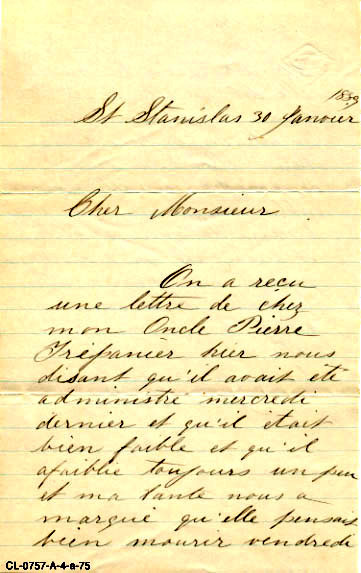 1889
St Stanislas 30 Janvier
Cher Monsieur
On a reçu
une lettre de chez
mon Oncle Pierre
Trépanier hier nous
disant qu'il avait été
administré mercredi
dernier et qu'il était
bien faible et qu'il
afaiblie toujours un peu
et ma tante nous a
marqué qu'elle pensait
bien mourir vendredi
CL-0757-A-4-a-75